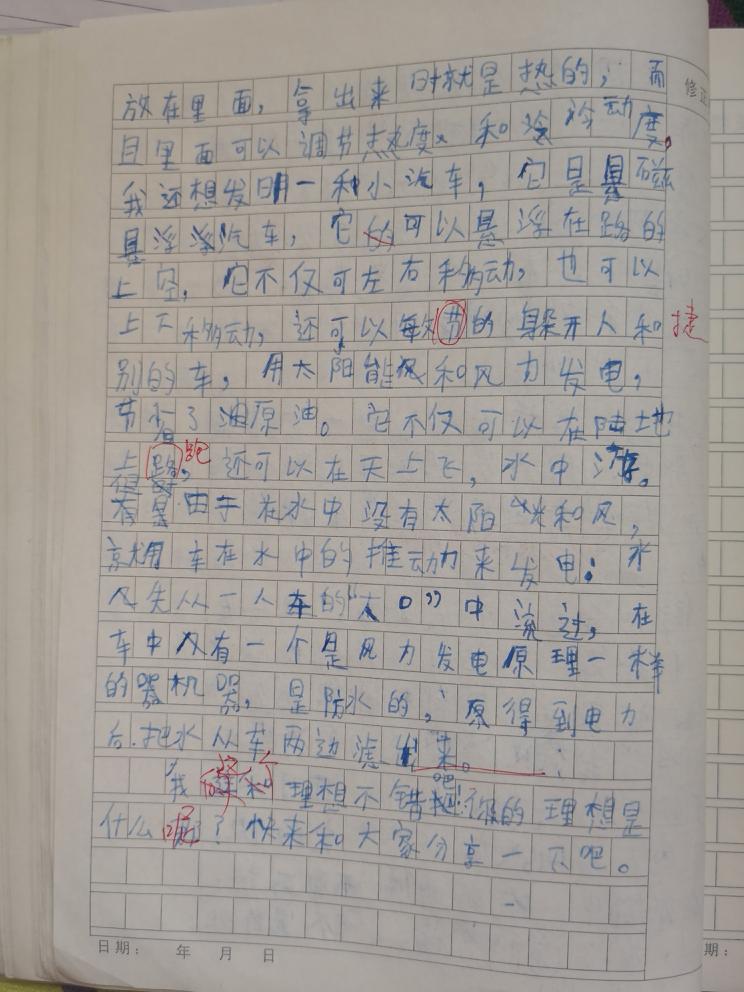 放在里面，拿出来时就是热的，而
且里面可以调节热度、和冷冷动度。
我还想发明一种小汽车，它是悬磁
悬浮浮汽车，它的可以悬浮在路的
上空，它不仅可左右移动，也可以
上下移动，还可以敏节的躲开人和
捷
别的车，用太阳能风和风力发电，
节省了油原油。它不仅可以在陆地
上路，跑还可以在天上飞，水中游。
但是由于在水中没有太阳光和风，
就用车在水中的推动力来发电：水
先从一人车的“大口”中流过，在
车中有一个是风力发电原理一样
的器机器，是防水的，原得到电力
后.把水从车两边流出来。
我 这个和理想不错吧!你的理想是
什么呢？快来和大家分享一下吧。
日期： 年 月 日
修正
期：